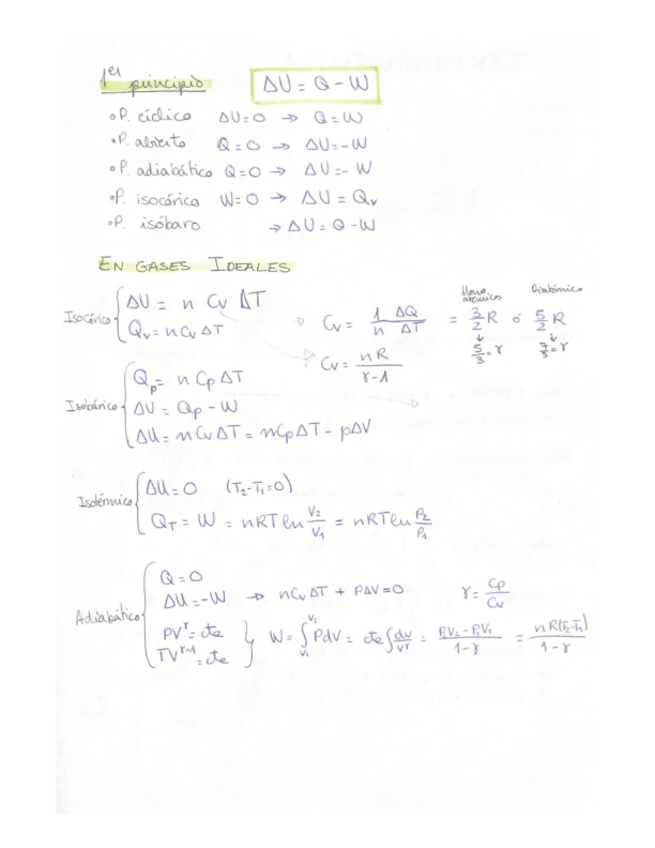 1er principio   ΔU = Q - W
• P. cíclico   ΔU=0 → Q=W
• P. abierto   Q=0 → ΔU=-W
• P. adiabático   Q=0 → ΔU=-W
• P. isocórico   W=0 → ΔU = Qv
• P. isóbaro   → ΔU = Q-W
EN GASES IDEALES
Isocórico { ΔU = n Cv ΔT
Qv = n Cv ΔT
Cv = 1/n ΔQ/ΔT = 3/2 R ó 5/2 R
Monoatómicos   Diatómico
5/3 = γ   7/5 = γ
Cv = nR/(γ-1)
Isobárico { Qp = n Cp ΔT
ΔU = Qp - W
ΔU = n Cv ΔT = n Cp ΔT - pΔV
Isotérmico { ΔU = 0   (T2-T1=0)
QT = W = nRT ln V2/V1 = nRT ln P2/P1
Adiabático { Q=0
ΔU=-W → nCvΔT + PΔV=0   γ = Cp/Cv
PV^γ = cte
TV^γ-1 = cte } W = ∫V1 V2 PdV = cte ∫ dv/vγ = (P2V2-P1V1)/(1-γ) = nR(T2-T1)/(1-γ)